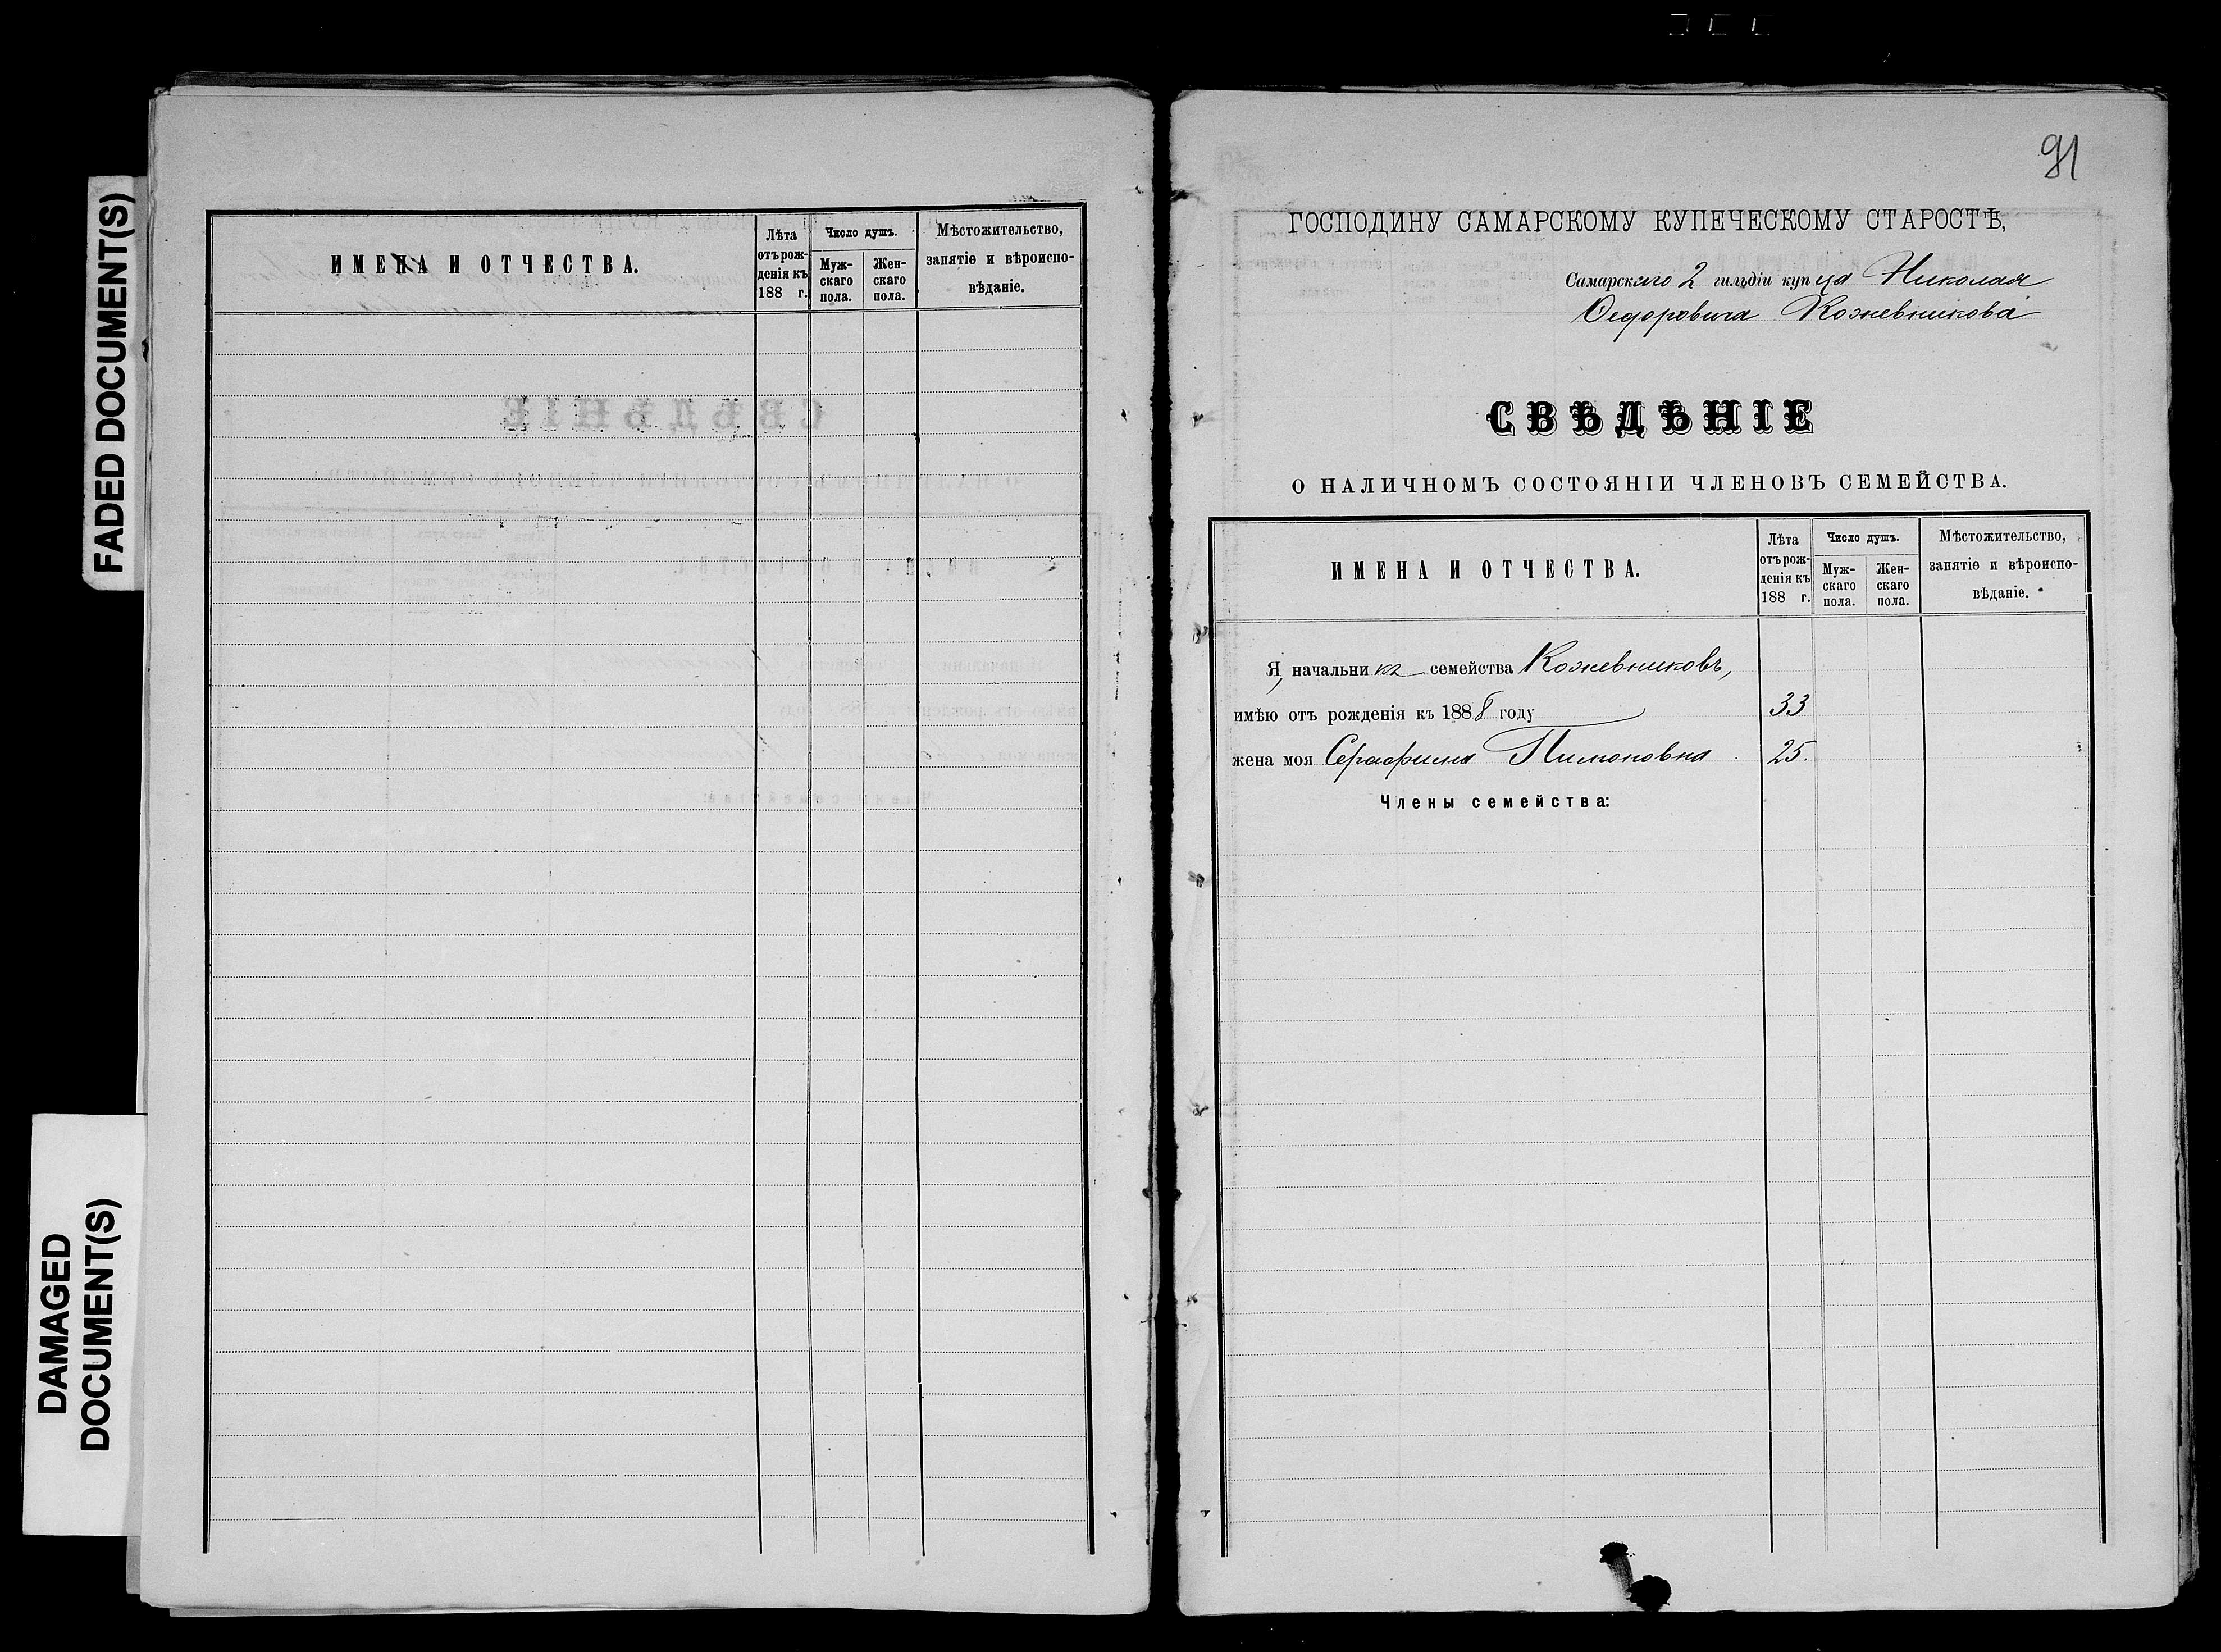 FADED DOCUMENT(S)
DAMAGED
DOCUMENT(S)
ИМЕНА И ОТЧЕСТВА.
Лѣта
отъ рож-
денія къ
188 г.
Число душъ.
Муж-
скаго
пола.
Жен-
скаго
пола.
Мѣстожительство,
занятіе и вѣроиспо-
вѣданіе.
91
ГОСПОДИНУ САМАРСКОМУ КУПЕЧЕСКОМУ СТАРОСТѢ,
Самарскаго 2 гильдіи купца Николая
Ѳедоровича Кожевникова
СВѢДѢНІЕ
О НАЛИЧНОМЪ СОСТОЯНІИ ЧЛЕНОВЪ СЕМЕЙСТВА.
ИМЕНА И ОТЧЕСТВА.
Лѣта
отъ рож-
денія къ
188 г.
Число душъ.
Муж-
скаго
пола.
Жен-
скаго
пола.
Мѣстожительство,
занятіе и вѣроиспо-
вѣданіе.
Я, начальникъ семейства Кожевниковъ,
имѣю отъ рожденія къ 1888 году 33
жена моя Серафима Пимоновна 25.
Члены семейства: